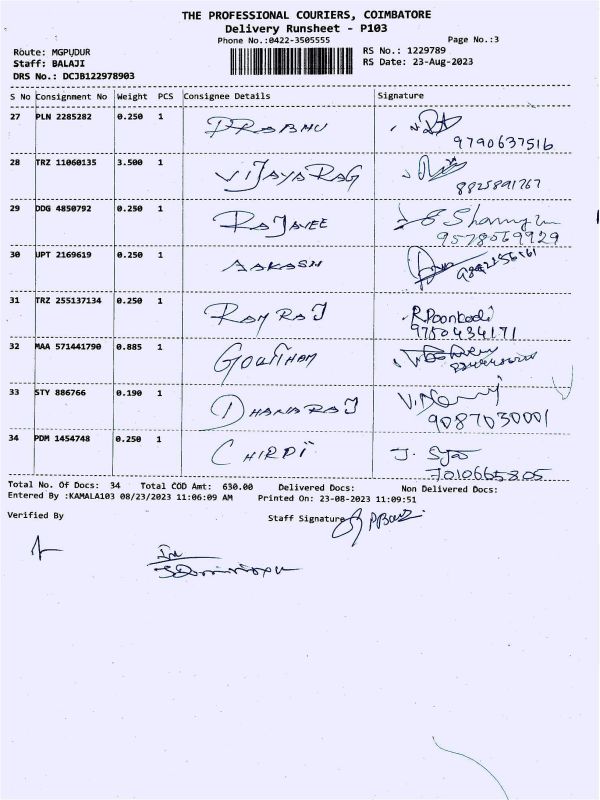 THE PROFESSIONAL COURIERS, COIMBATORE
Delivery Runsheet - P103
Phone No.:0422-3505555 Page No.:3
Route: MGPUDUR RS No.: 1229789
Staff: BALAJI RS Date: 23-Aug-2023
DRS No.: DCJB122978903
S No Consignment No Weight PCS Consignee Details Signature
27 PLN 2285282 0.250 1 PRABHU
9790637516
28 TRZ 11060135 3.500 1 VIJAYA RAG
8825891767
29 DDG 4850792 0.250 1 RAJAVEE
9578069929
30 UPT 2169619 0.250 1 AAKASH
31 TRZ 255137134 0.250 1 RAM RAJ R.Poonkodi
9750434171
32 MAA 571441790 0.885 1 GOUTHAM
33 STY 886766 0.190 1 DHANARAJ
9087030001
34 PDM 1454748 0.250 1 CHIRDI J.
7010665805
Total No. Of Docs: 34 Total COD Amt: 630.00 Delivered Docs: Non Delivered Docs:
Entered By :KAMALA103 08/23/2023 11:06:09 AM Printed On: 23-08-2023 11:09:51
Verified By Staff Signature